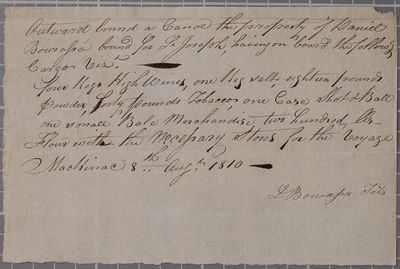 Outward bound a Canoe the property of Daniel
Bourassa bound for St Joseph, having on board the following
Cargo Viz.
four Kegs High Wines, one Keg Salt, eighteen pounds
Powder, forty Pounds Tobacco, one Case Shot & Ball
one small Bale Merchandise two hundred lbs
Flour with the Necessary Stores for the Voyage
Mackinac 8th Augt. 1810
D Bourassa Fils